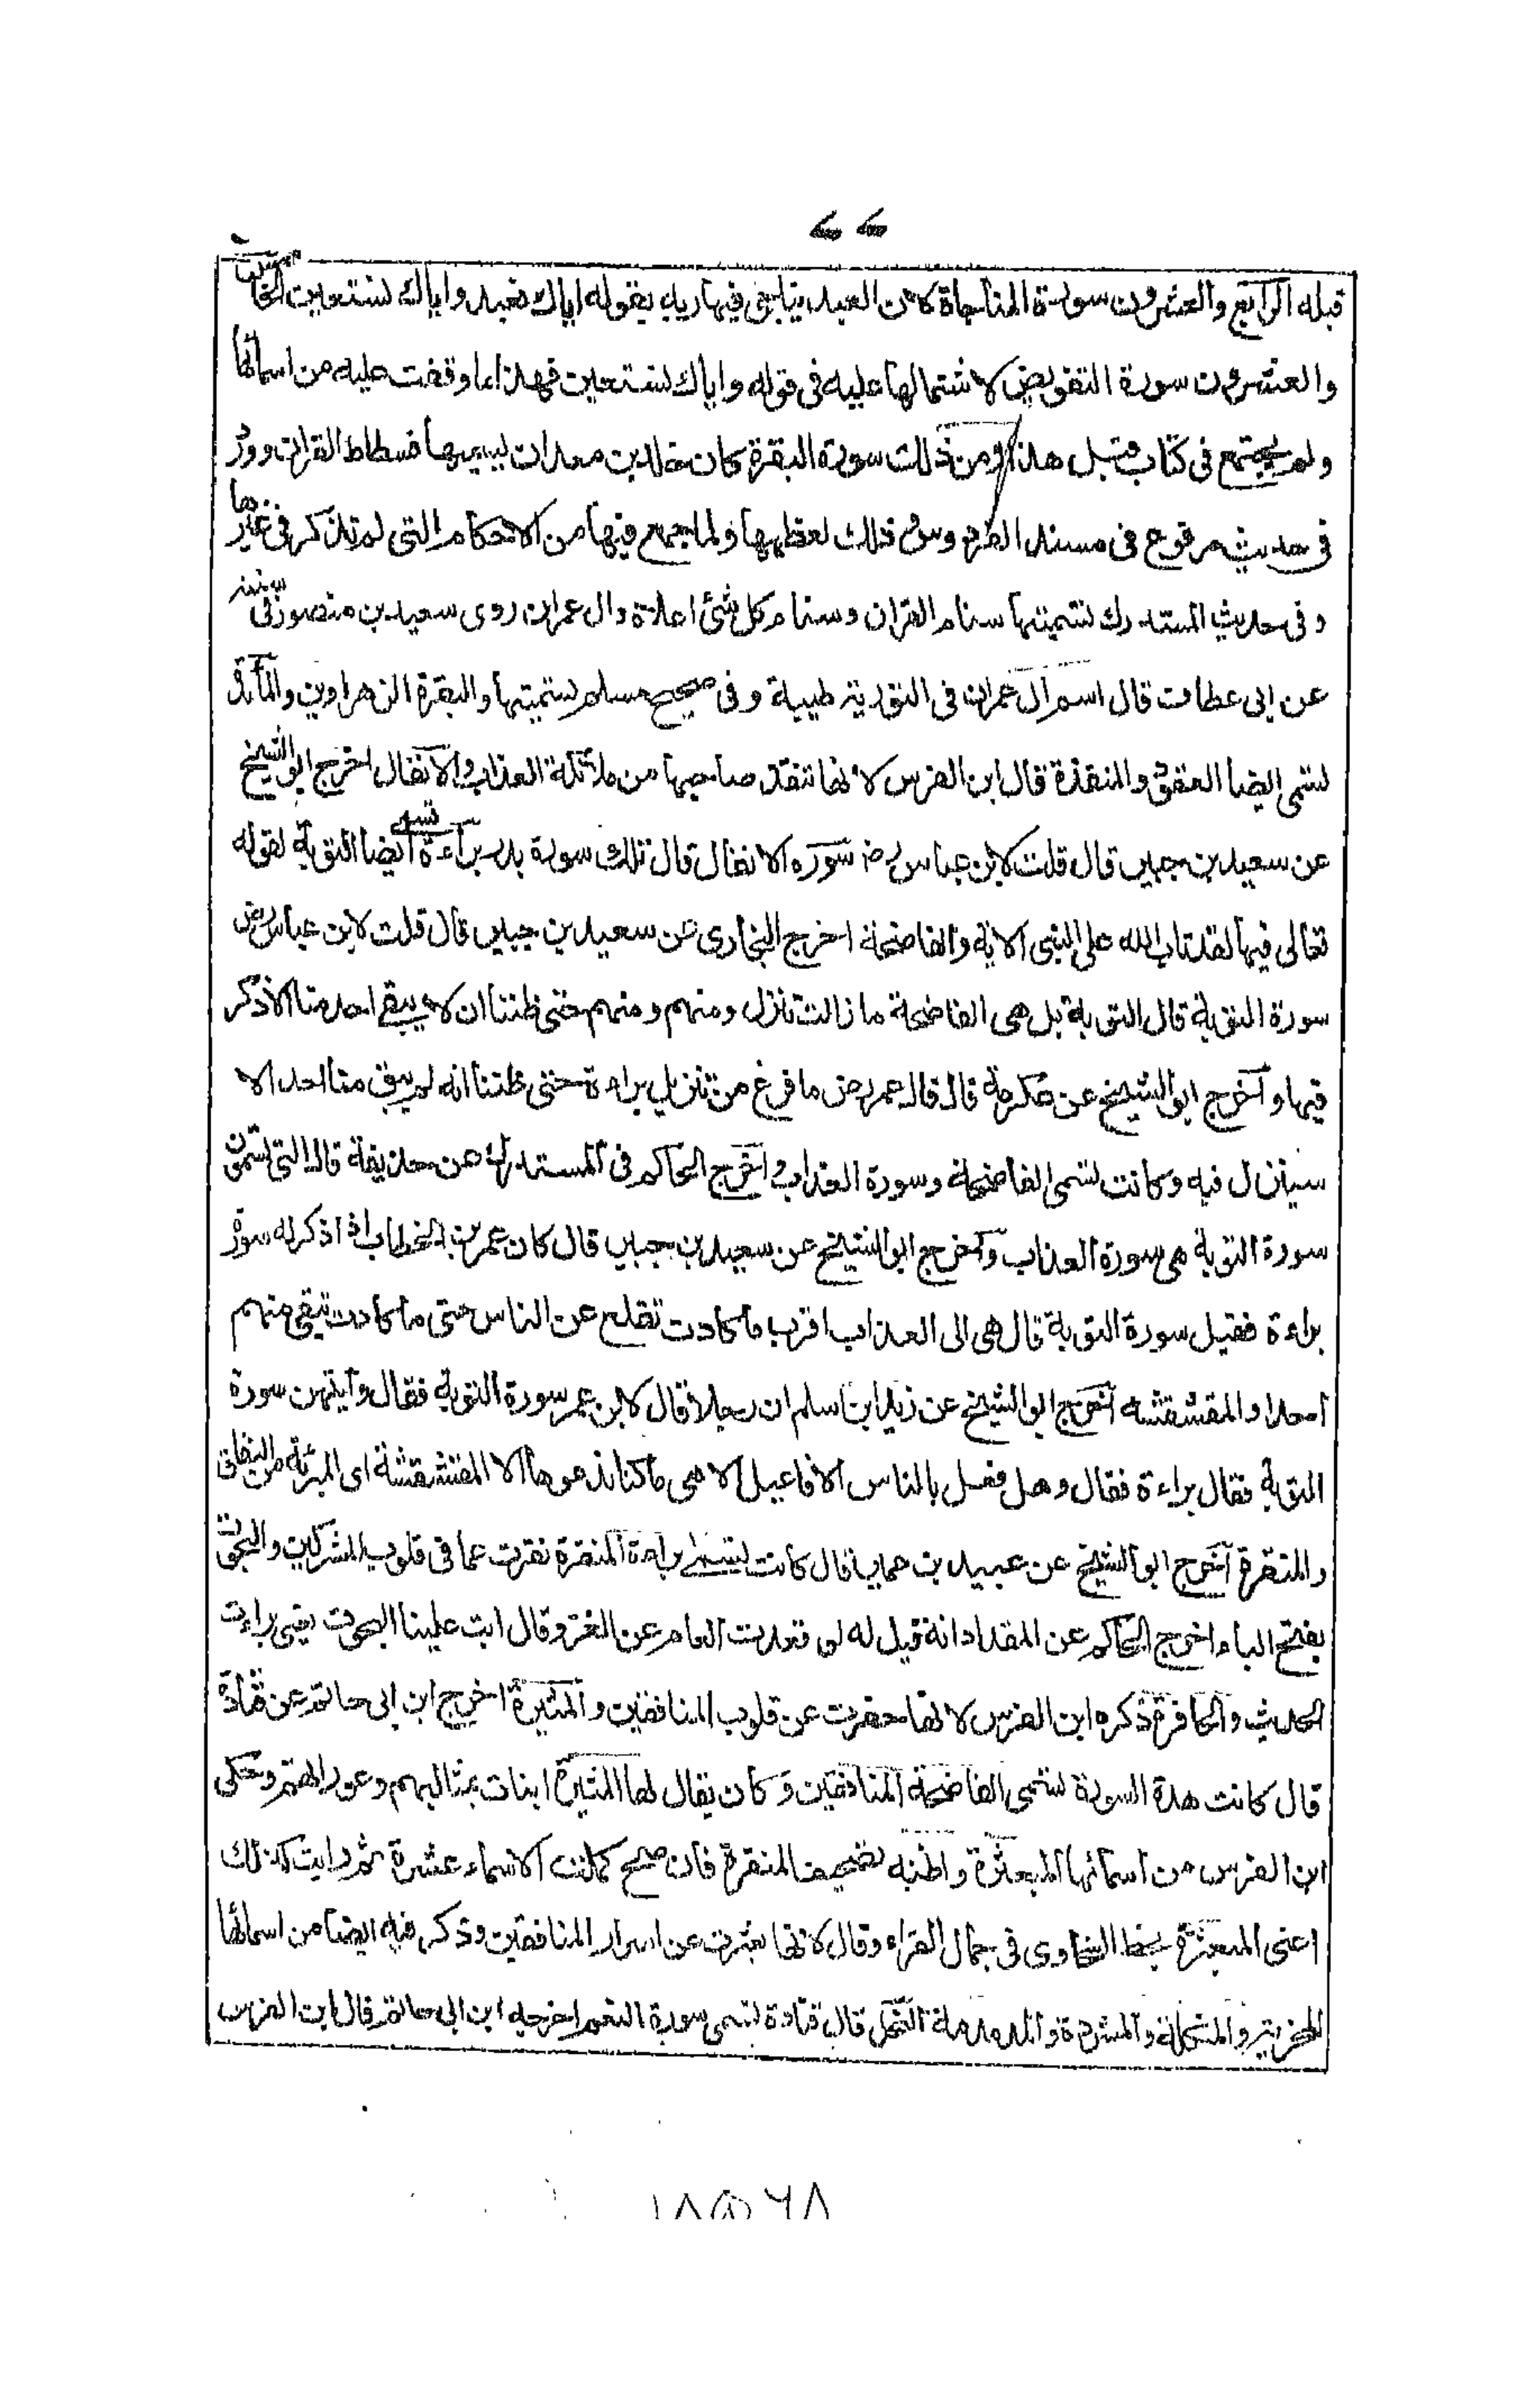 ٤٤
قبله الرابع والعشرون سورة المناجاة لان العبد يناجى فيها ربه بقوله اياك نعبد واياك نستعين الخامس
والعشرون سورة التفويض لاشتمالها عليه فى قوله واياك نستعين فهذا ما وقفت عليه من اسمائها
ولم يجتمع فى كتاب قبل هذا ومن ذلك سورة البقرة كان خالد بن معدان يسميها فسطاط القران وورد
فى حديث مرفوع فى مسند الفردوس وذلك لعظمها ولما جمع فيها من الاحكام التى لم تذكر فى غيرها
وفى حديث المستدرك تسميتها سنام القران وسنام كل شئ اعلاه وال عمران روى سعيد بن منصور فى سننه
عن ابى عطاف قال اسم ال عمران فى التورية طيبة وفى صحيح مسلم تسميتها والبقرة الزهراوين والمائدة
تسمى ايضا العقود والمنقذة قال ابن الفرس لانها تنقذ صاحبها من ملائكة العذاب والانفال اخرج ابو الشيخ
عن سعيد بن جبير قال قلت لابن عباس رض سورة الانفال قال تلك سورة بدر براءة تسمى ايضا التوبة لقوله
تعالى فيها لقد تاب الله على النبى الاية والفاضحة اخرج البخارى عن سعيد بن جبير قال قلت لابن عباس رض
سورة التوبة قال التوبة بل هى الفاضحة ما زالت تنزل ومنهم ومنهم حتى ظننا ان لا يبقى احد منا الا ذكر
فيها واخرج ابو الشيخ عن عكرمة قال قال عمر رض ما فرغ من تنزيل براءة حتى ظننا انه لم يبق منا احد الا
سينزل فيه وكانت تسمى الفاضحة وسورة العذاب واخرج الحاكم فى المستدرك عن حذيفة قال التى تسمون
سورة التوبة هى سورة العذاب واخرج ابو الشيخ عن سعيد بن جبير قال كان عمر بن الخطاب اذا ذكر له سورة
براءة فقيل سورة التوبة قال هى الى العذاب اقرب ما كادت تقلع عن الناس حتى ما كادت تبقى منهم
احدا والمقشقشه اخرج ابو الشيخ عن زيد ابن اسلم ان رجلا قال لابن عمر سورة التوبة فقال وايتهن سورة
التوبة فقال براءة فقال وهل فعل بالناس الافاعيل الا هى ما كنا ندعوها الا المقشقشة اى المبرئة من النفاق
والمنقرة اخرج ابو الشيخ عن عبيد بن عمير قال كانت تسمى براءة المنقرة نقرت عما فى قلوب المشركين والبحوث
بفتح الباء اخرج الحاكم عن المقداد انه قيل له لو قعدت العام عن الغزو قال ابت علينا البحوث يعنى براءة
الحديث والحافرة ذكره ابن الفرس لانها حفرت عن قلوب المنافقين والمثيرة اخرج ابن ابى حاتم عن قتادة
قال كانت هذه السورة تسمى الفاضحة المنافقين وكان يقال لها المثيرة انبات بمثالبهم وعوراتهم وحكى
ابن الفرس من اسمائها المبعثرة واظنه تصحيف المنقرة فان صح كملت الاسماء عشرة ثم رايت كذلك
اعنى المبعثرة بخط السخاوى فى جمال القراء وقال لانها بعثرت عن اسرار المنافقين وذكر فيه ايضا من اسمائها
المخزية والمنكلة والمشردة والمدمدمة النحل قال قتادة تسمى سورة النعم اخرجه ابن ابى حاتم قال ابن الفرس